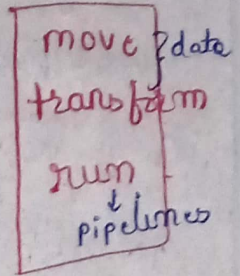 move } data
transform
run
↓
pipelines